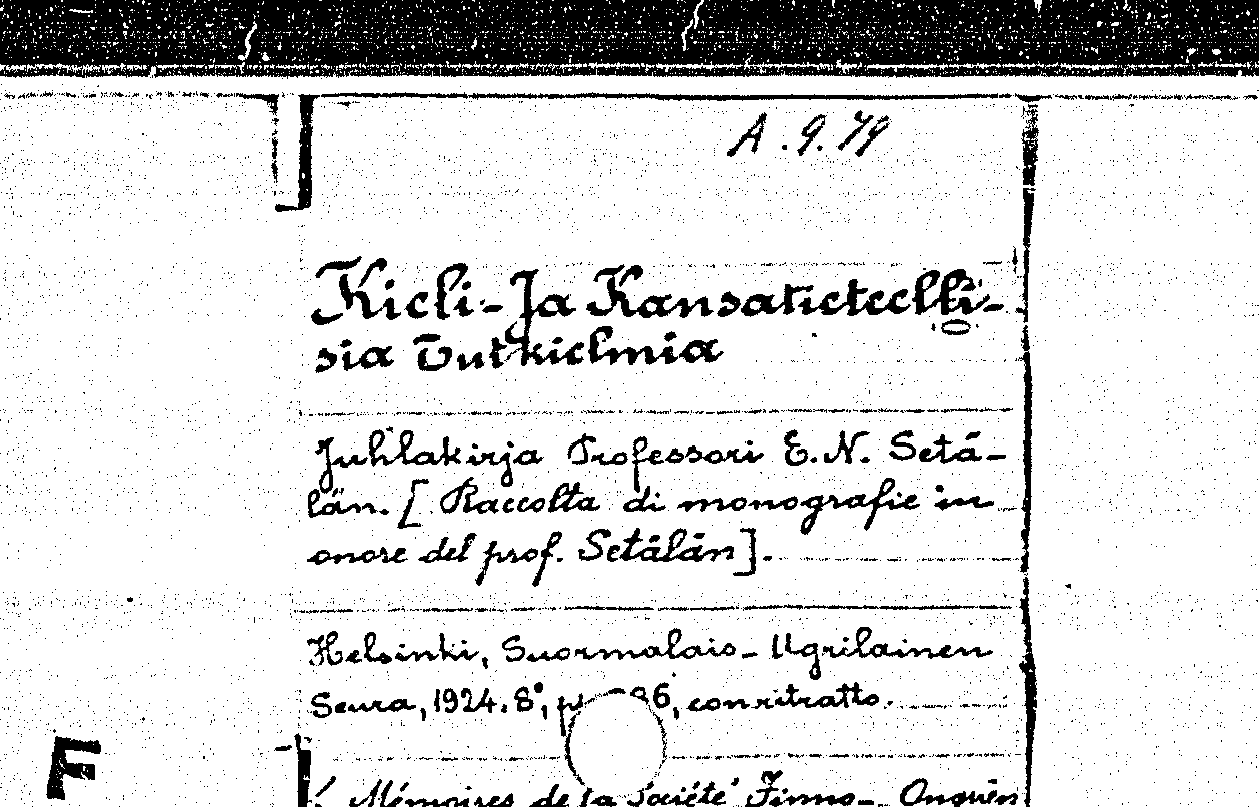 A.9.79
Kieli-Ja Kansatieteelli-
sia Tutkielmia
Juhlakirja Professori E.N. Setä-
län. [Raccolta di monografie in
onore del prof. Setälän].
Helsinki, Suomalais-Ugrilainen
Seura, 1924. 8°, con ritratto.
( Mémoires de la Société Finno-
F